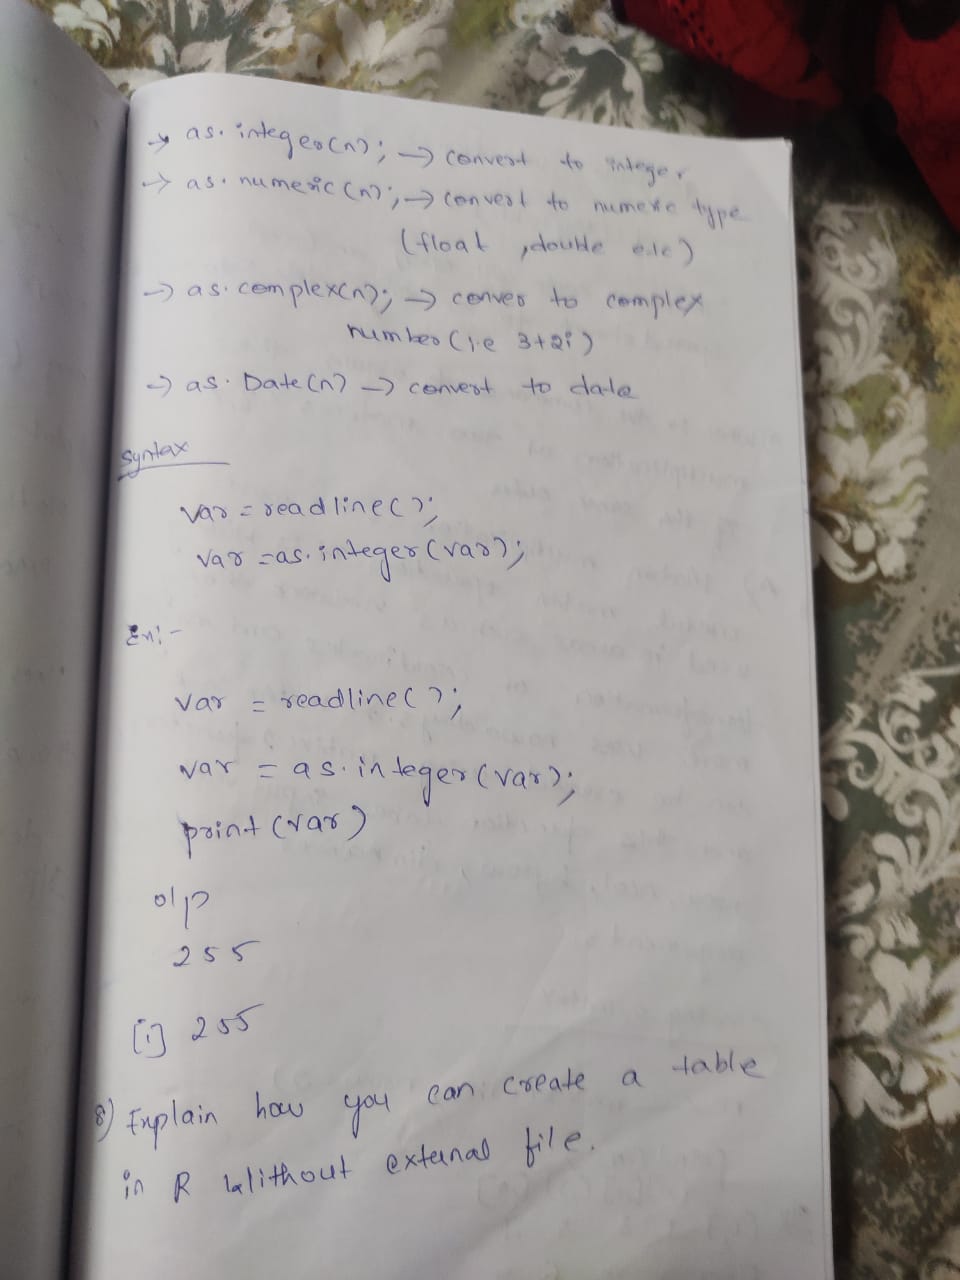 → as.integer(n); → convert to integer
→ as.numeric(n); → convert to numeric type
(float, double etc)
→ as.complex(n); → conver to complex
number (i.e 3+2i)
→ as.Date(n) → convert to date
Syntax
var = readline();
var = as.integer(var);
Ex:-
var = readline();
var = as.integer(var);
print(var)
o/p
255
[1] 255
8) Explain how you can create a table
in R without external file.